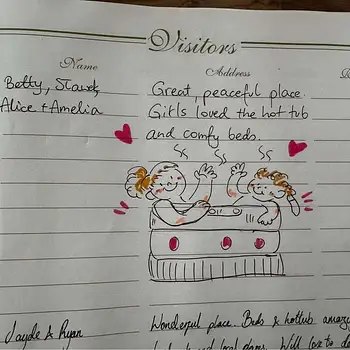 Visitors
Name
Address
Betty,
Great, peaceful place.
Alice + Amelia
Girls loved the hot tub
and comfy beds.
Jayde & Ryan
Wonderful place. Beds & hottub
local Will love to